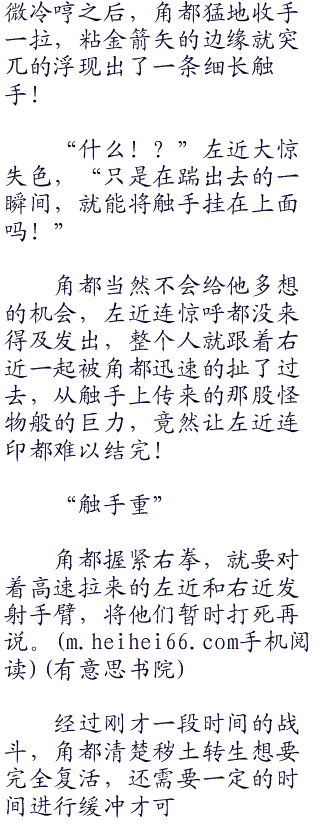 微冷哼之后，角都猛地收手
一拉，粘金箭矢的边缘就突
兀的浮现出了一条细长触
手！
“什么！？”左近大惊
失色，“只是在踹出去的一
瞬间，就能将触手挂在上面
吗！”
角都当然不会给他多想
的机会，左近连惊呼都没来
得及发出，整个人就跟着右
近一起被角都迅速的扯了过
去，从触手上传来的那股怪
物般的巨力，竟然让左近连
印都难以结完！
“触手重”
角都握紧右拳，就要对
着高速拉来的左近和右近发
射手臂，将他们暂时打死再
说。(m.heihei66.com手机阅
读)(有意思书院)
经过刚才一段时间的战
斗，角都清楚秽土转生想要
完全复活，还需要一定的时
间进行缓冲才可